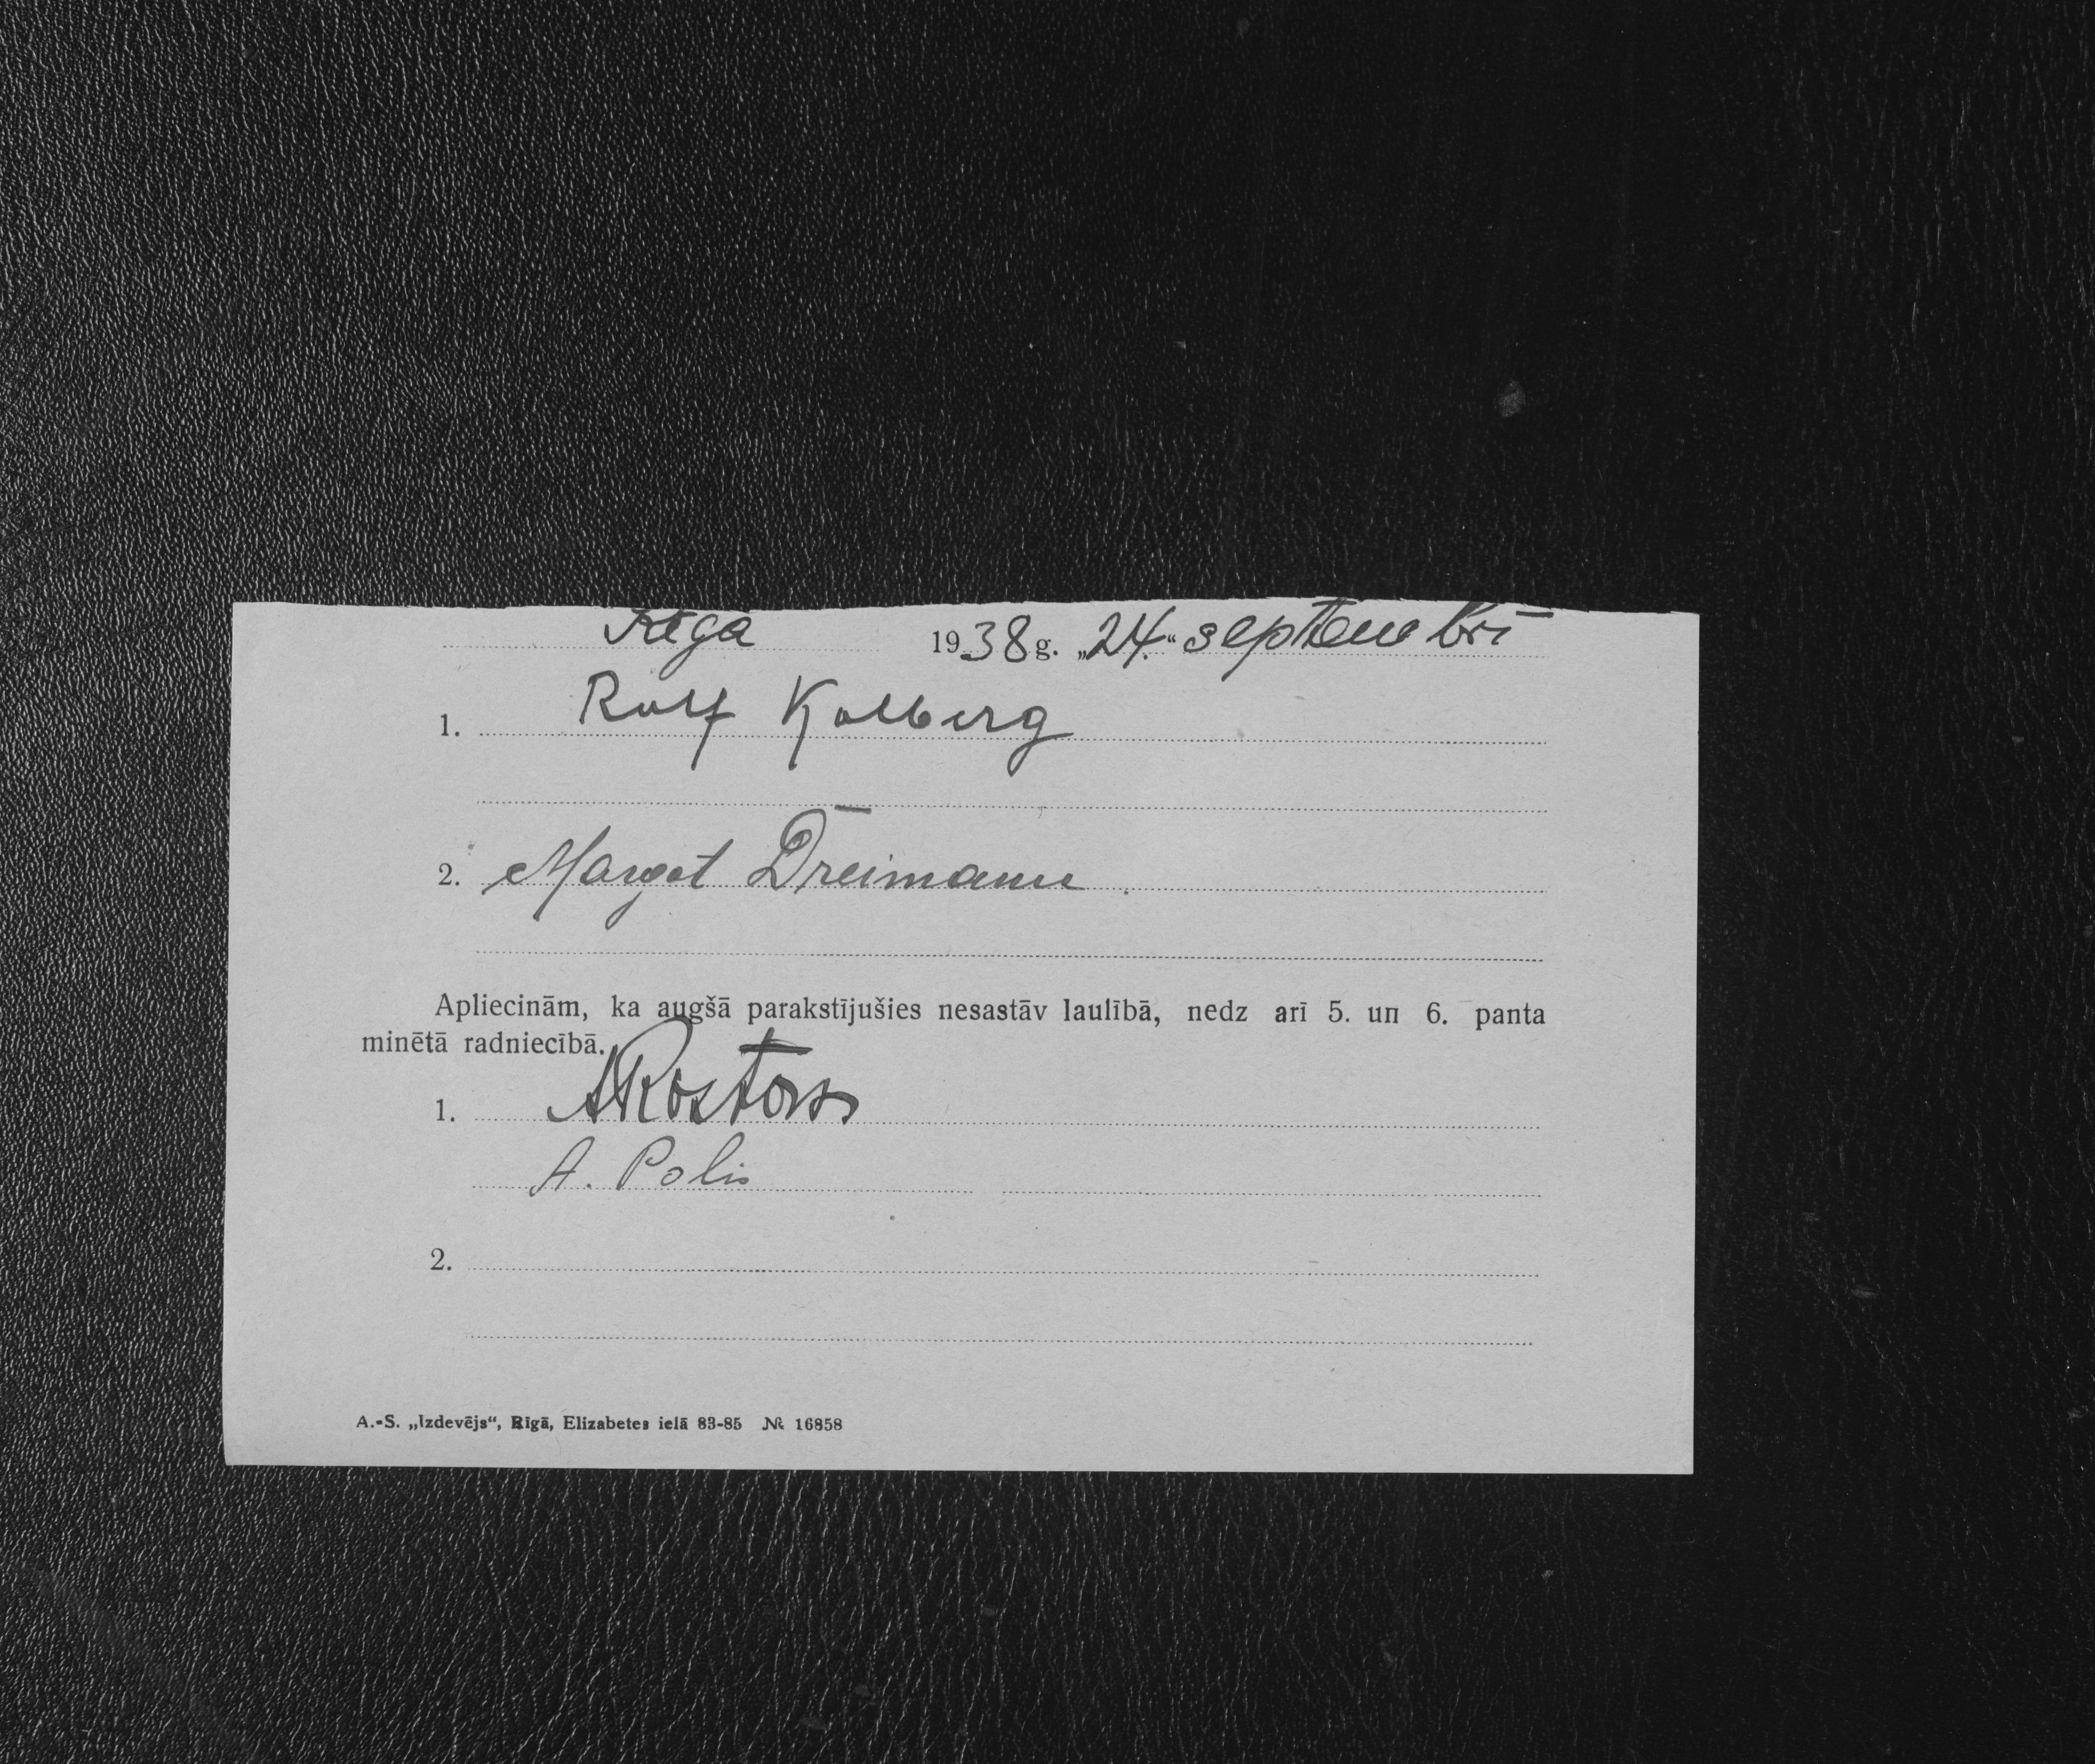 Rīgā 1938 g. „24.“ septembrī
1. Rolf Kolberg
2. Margot Dreimann
Apliecinām, ka augšā parakstījušies nesastāv laulībā, nedz arī 5. un 6. panta
minētā radniecībā.
1.
A. Polis
2.
A.-S. „Izdevējs“, Rīgā, Elizabetes ielā 83-85 № 16858